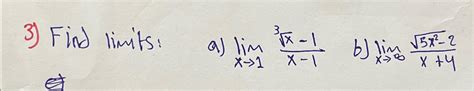 3) Find limits: a) lim x→1 (∛x − 1)/(x − 1) b) lim x→∞ (√(5x² − 2))/(x + 4)